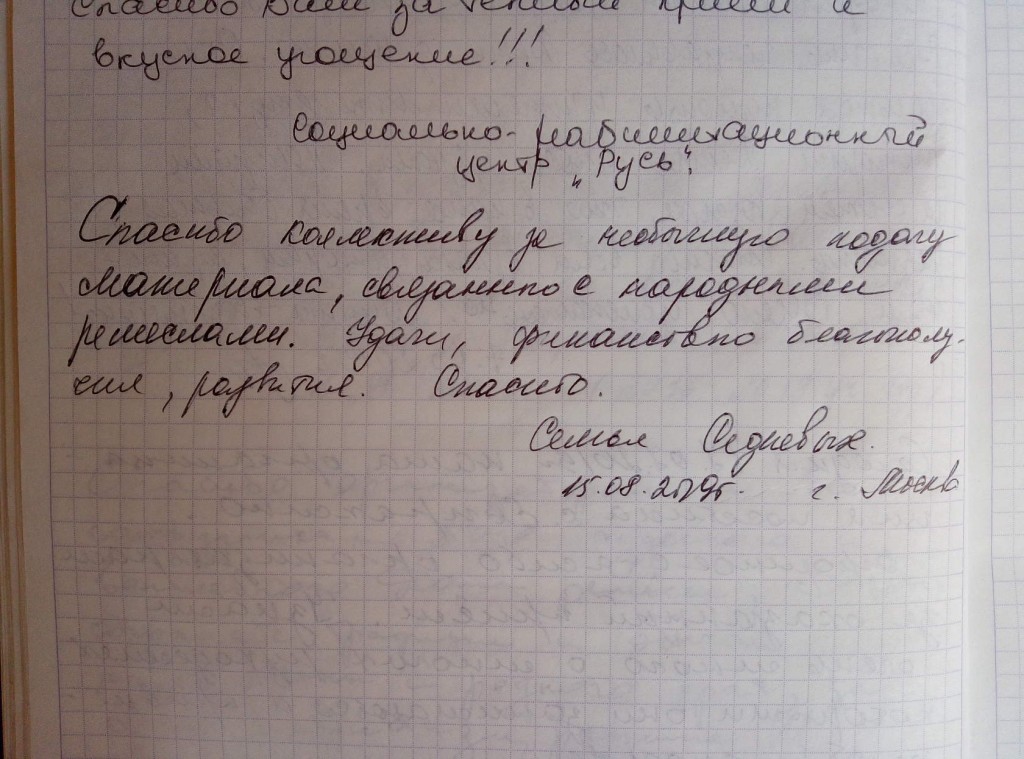 Спасибо Вам за теплый прием и
вкусное угощение!!!
Социально-реабилитационный
центр „Русь".
Спасибо коллективу за необычную подачу
материала, связанного с народными
ремеслами. Удачи, финансового благополу-
чия, развития. Спасибо.
Семья Седневых.
15.08.2019г. г. Москва